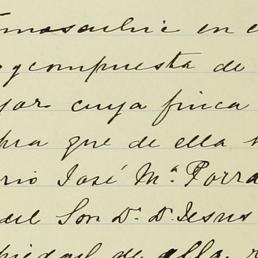 en
y compuesta de
jor cuya finca
pra que de ella
rio José Mª Porra
del Son Dn. D. Jesus
piedad de ella